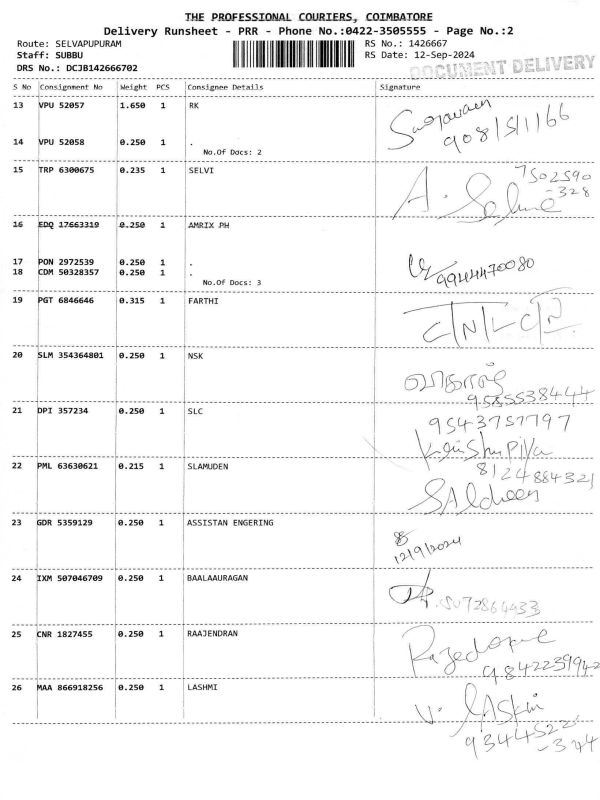 THE PROFESSIONAL COURIERS, COIMBATORE
Delivery Runsheet - PRR - Phone No.:0422-3505555 - Page No.:2
Route: SELVAPUPURAM RS No.: 1426667
Staff: SUBBU RS Date: 12-Sep-2024
DRS No.: DCJB142666702 DOCUMENT DELIVERY
S No Consignment No Weight PCS Consignee Details Signature
13 VPU 52057 1.650 1 RK
908151166
14 VPU 52058 0.250 1 .
No.Of Docs: 2
15 TRP 6300675 0.235 1 SELVI 7502590
-328
A.
16 EDQ 17663319 0.250 1 AMRIX PH
17 PON 2972539 0.250 1 .
18 CDM 50328357 0.250 1 . 9944470080
No.Of Docs: 3
19 PGT 6846646 0.315 1 FARTHI
20 SLM 354364801 0.250 1 NSK
9585538444
21 DPI 357234 0.250 1 SLC 9543757797
22 PML 63630621 0.215 1 SLAMUDEN 8124884321
23 GDR 5359129 0.250 1 ASSISTAN ENGERING
12/9/2024
24 IXM 507046709 0.250 1 BAALAAURAGAN
25 CNR 1827455 0.250 1 RAAJENDRAN
9842239942
26 MAA 866918256 0.250 1 LASHMI V. LASkmi
9344522
-344